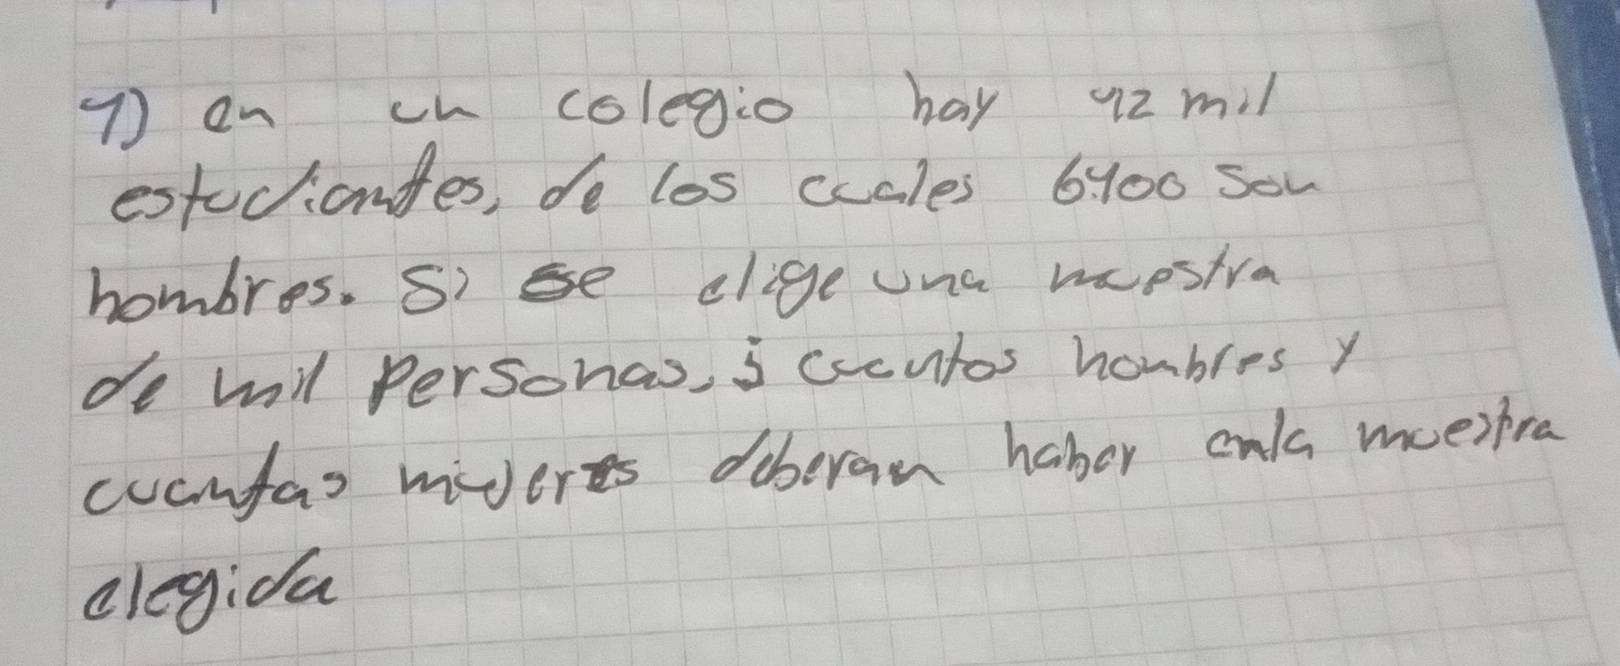 7) en un colegio hay 12 mil
estudiantes, de los cuales 6400 son
hombres. Si se elige una muestra
de mil personas, ¿ cuantos hombres y
cuantas mujeres deberan haber en la muestra
elegida